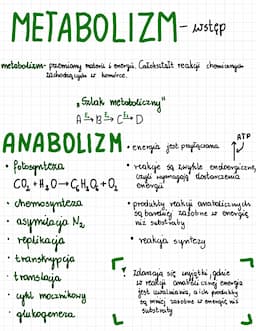 METABOLIZM - wstęp
metabolizm - przemiany materii i energii. Całokształt reakcji chemicznych
zachodzących w komórce.
„Szlak metaboliczny”
A E₁→ B E₂→ C E₃→ D
ANABOLIZM
• energia jest pochłaniana ATP
• fotosynteza
CO₂ + H₂O → C₆H₁₂O₆ + O₂
• chemosynteza
• asymilacja N₂
• replikacja
• transkrypcja
• translacja
• cykl mocznikowy
• glukogeneza
• reakcje są zwykle endoergiczne,
czyli wymagają dostarczenia
energii
• produkty reakcji anabolicznych
są bardziej zasobne w energię
niż substraty
• reakcja syntezy
! Zdarzają się wyjątki, gdzie
w reakcji anabolicznej energia
jest uwalniania, a ich produkty
są mniej zasobne w energię niż
substraty